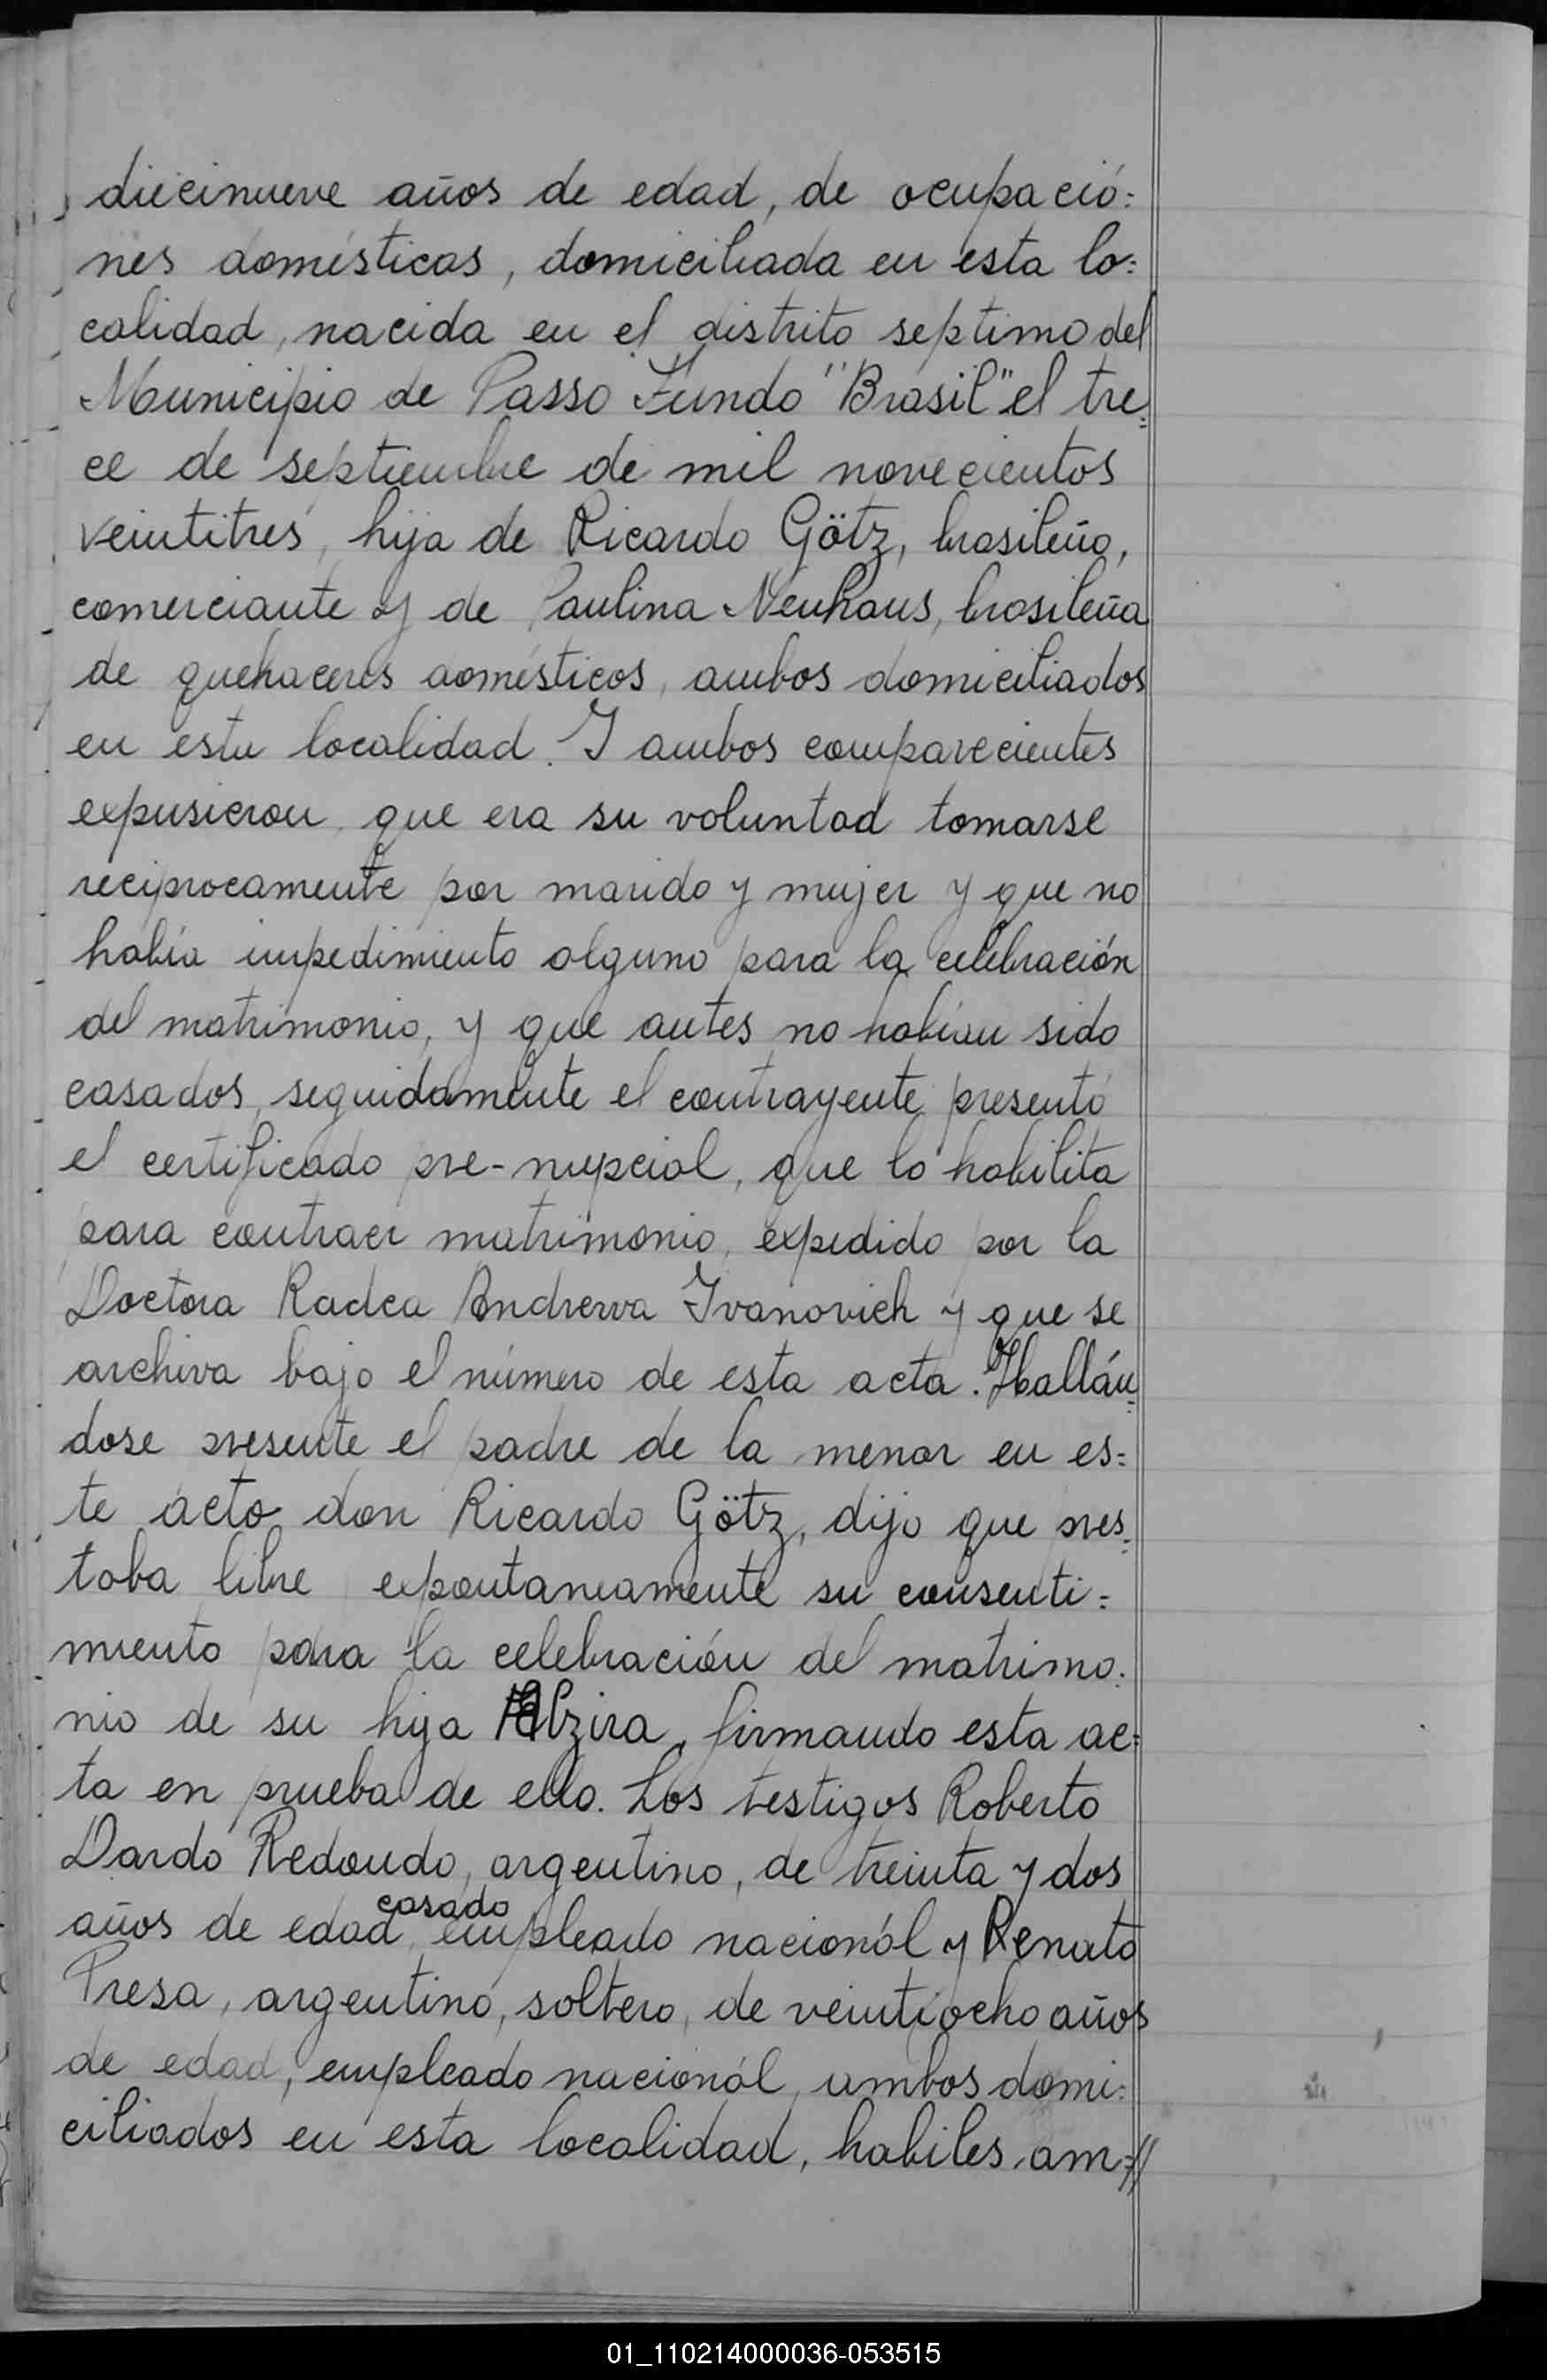 diecinueve años de edad, de ocupació=
nes domésticas, domiciliada en esta lo=
calidad, nacida en el distrito septimo del
Municipio de Passo Fundo "Brasil" el tre=
ce de septiembre de mil novecientos
veintitres, hija de Ricardo Götz, brasileño,
comerciante y de Paulina Neuhaus, brasileña
de quehaceres domésticos, ambos domiciliados
en esta localidad. I ambos comparecientes
expusieron que era su voluntad tomarse
reciprocamente por marido y mujer y que no
había impedimiento alguno para la celebración
del matrimonio, y que antes no habian sido
casados, seguidamente el contrayente presentó
el certificado pre-nupcial, que lo habilita
para contraer matrimonio, expedido por la
Doctora Radca Andrewa Ivanovich y que se
archiva bajo el número de esta acta. Hallán=
dose presente el padre de la menor en es=
te acto don Ricardo Götz, dijo que pres=
taba libre espontaneamente su consenti=
miento para la celebración del matrimo=
nio de su hija Alzira, firmando esta ac=
ta en prueba de ello. Los testigos Roberto
Dardo Redondo, argentino, de treinta y dos
casado
años de edad, empleado nacionál y Renato
Presa, argentino, soltero, de veintiocho años
de edad, empleado nacionál, ambos domi=
ciliados en esta localidad, habiles, am=//
01_110214000036-053515